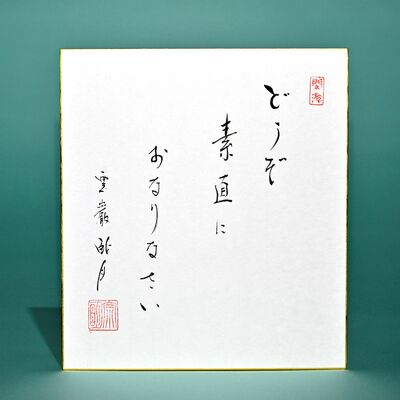 どうぞ
素直に
おなりなさい
雲巌